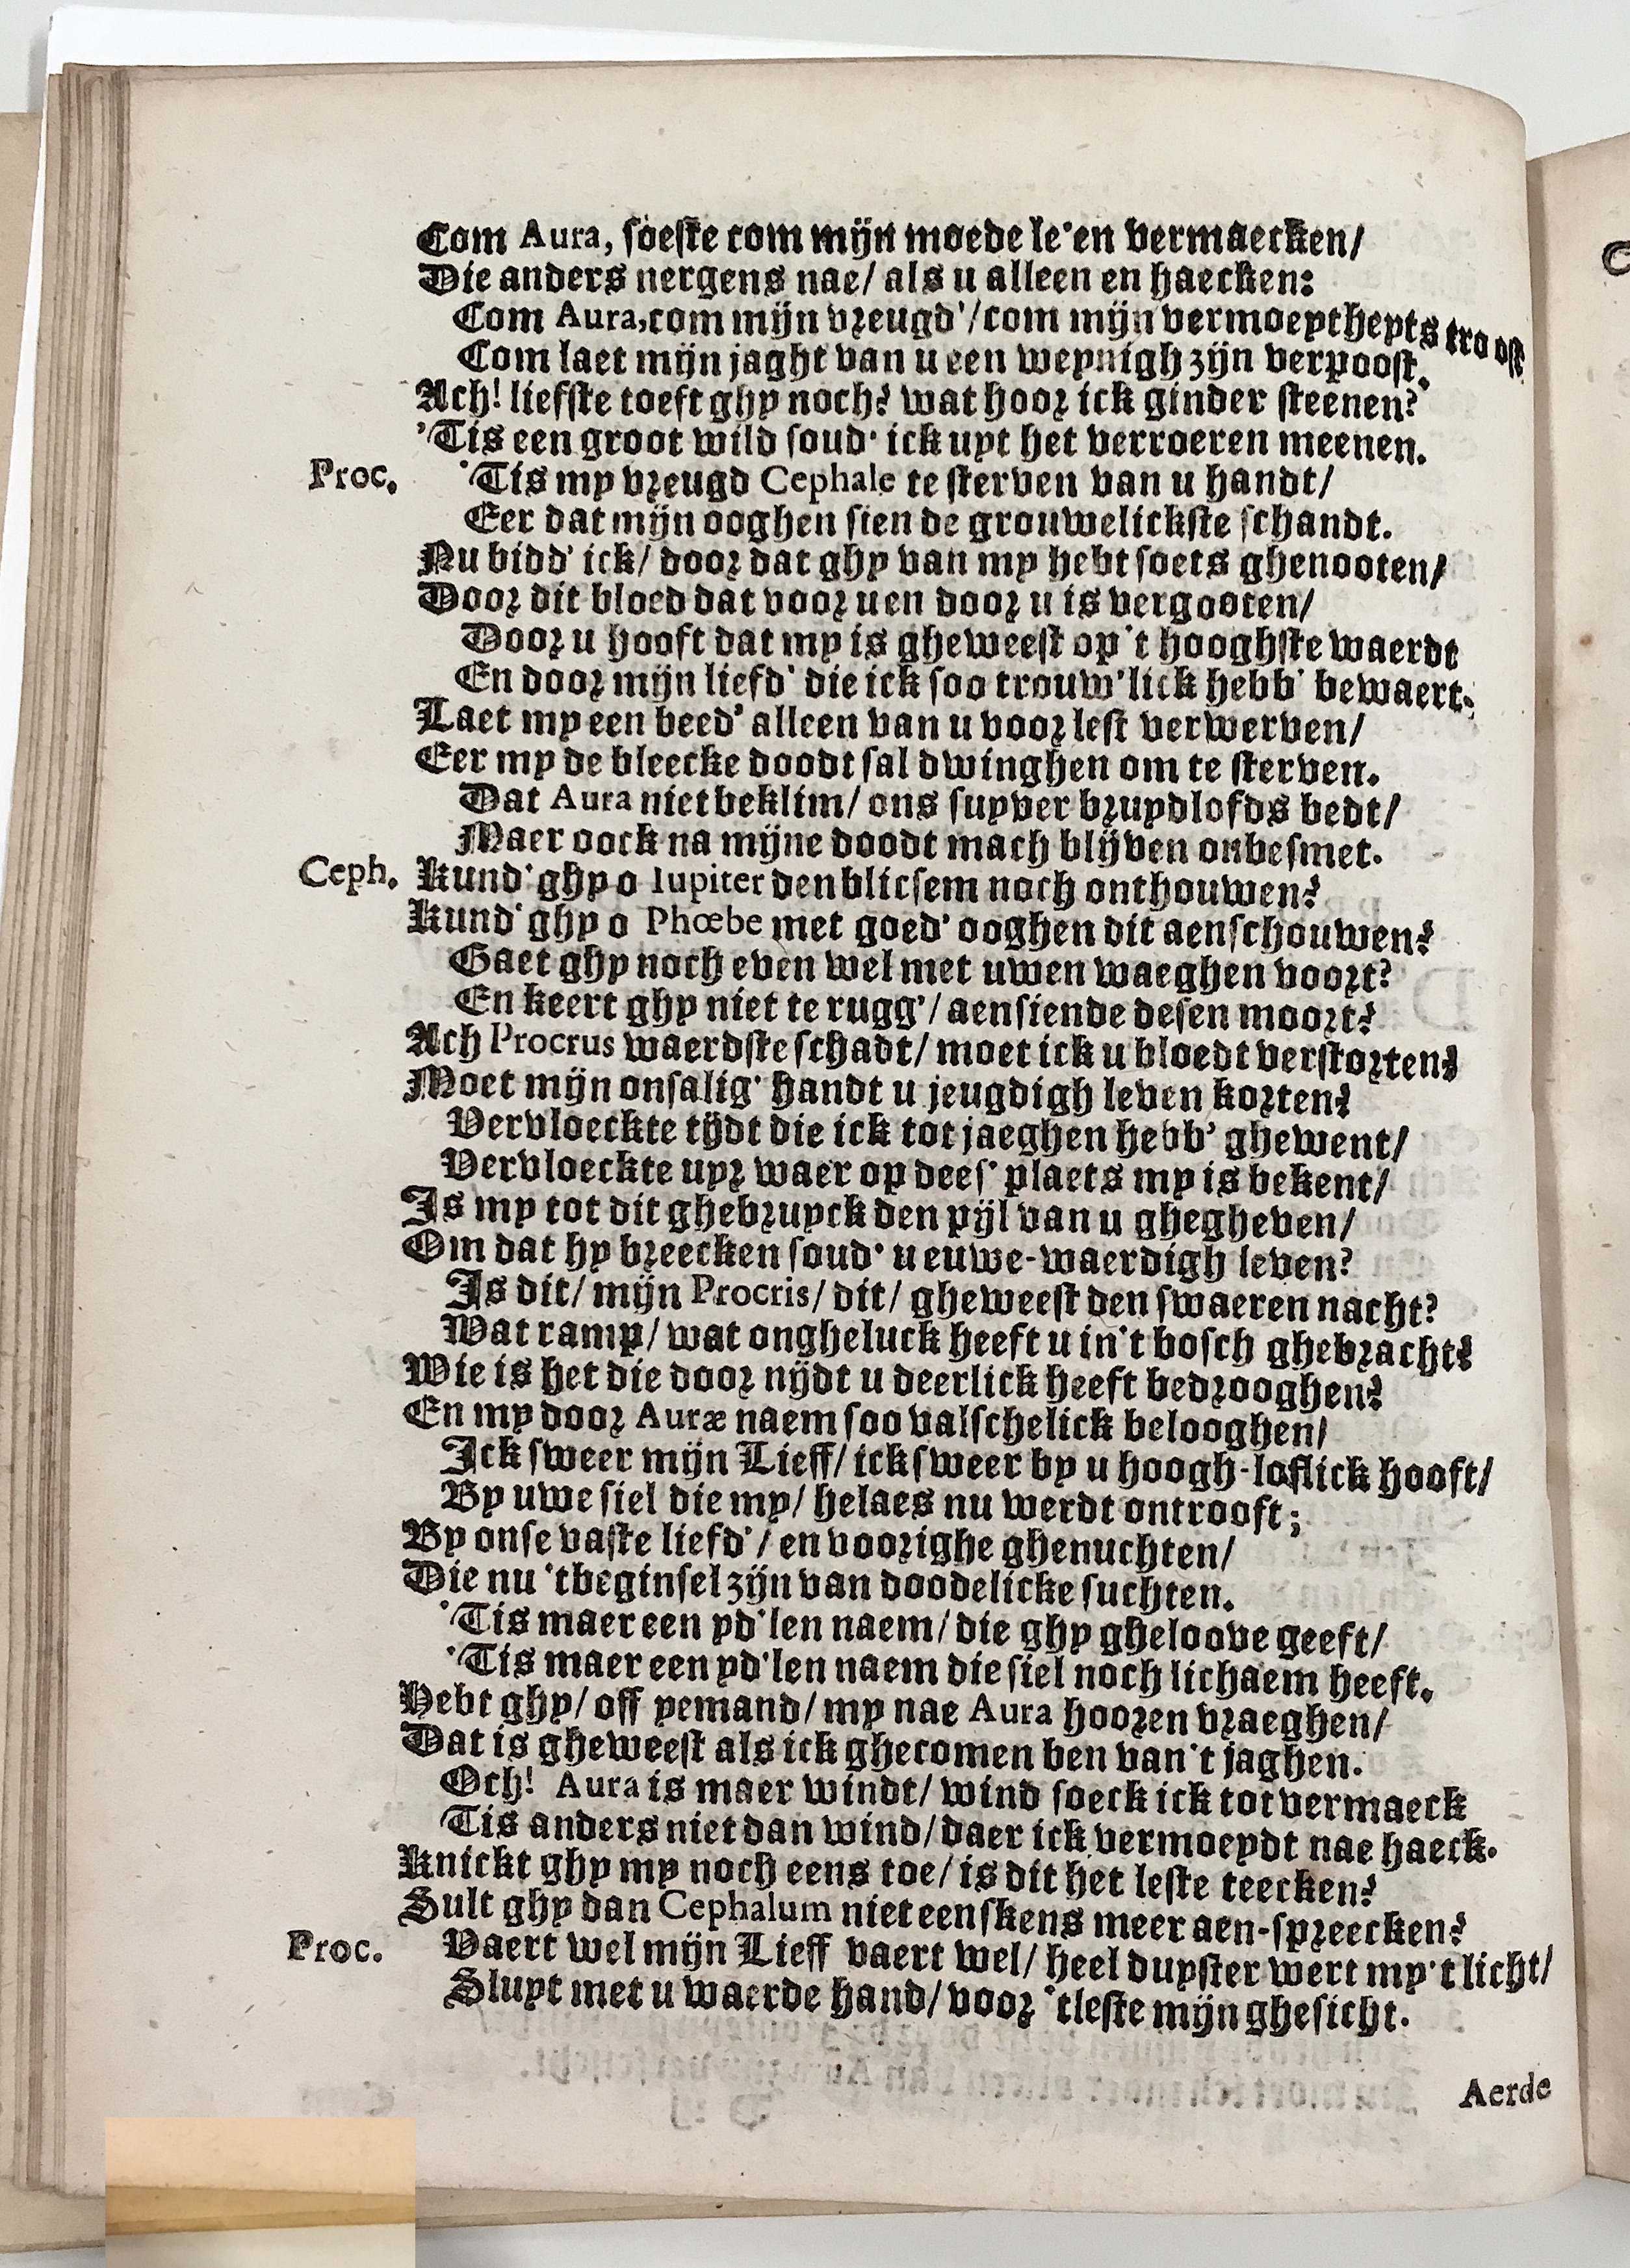 Com Aura, soeste com mijn moede le'en vermaecken/
Die anders nergens nae/ als u alleen en haecken:
Com Aura, com mijn vreugd'/com mijn vermoeytheyts troost
Com laet mijn jaght van u een weynigh zijn verpoost.
Ach! liefste toeft ghy noch? wat hoor ick ginder steenen?
'Tis een groot wild soud' ick uyt het verroeren meenen.
Proc. 'Tis my vreugd Cephale te sterven van u handt/
Eer dat mijn ooghen sien de grouwelickste schandt.
Nu bidd' ick/ door dat ghy van my hebt soets ghenooten/
Door dit bloed dat voor u en door u is vergooten/
Door u hooft dat my is gheweest op't hooghste waerdt
En door mijn liefd' die ick soo trouw'lick hebb' bewaert.
Laet my een beed' alleen van u voor lest verwerven/
Eer my de bleecke doodt sal dwinghen om te sterven.
Dat Aura niet beklim/ ons suyver bruydlofds bedt/
Maer oock na mijne doodt mach blijven onbesmet.
Ceph. Kund' ghy o Iupiter den blicsem noch onthouwen?
Kund' ghy o Phœbe met goed' ooghen dit aenschouwen?
Gaet ghy noch even wel met uwen waeghen voort?
En keert ghy niet te rugg'/ aensiende desen moort?
Ach Procrus waerdste schadt/ moet ick u bloedt verstorten?
Moet mijn onsalig' handt u jeugdigh leven korten?
Vervloeckte tijdt die ick tot jaeghen hebb' ghewent/
Vervloeckte uyr waer op dees' plaets my is bekent/
Is my tot dit ghebruyck den pijl van u ghegheven/
Om dat hy breecken soud' u euwe-waerdigh leven?
Is dit/ mijn Procris/ dit/ gheweest den swaeren nacht?
Wat ramp/ wat ongheluck heeft u in't bosch ghebracht?
Wie is het die door nijdt u deerlick heeft bedrooghen?
En my door Auræ naem soo valschelick belooghen/
Ick sweer mijn Lieff/ ick sweer by u hoogh-loflick hooft/
By uwe siel die my/ helaes nu werdt ontrooft;
By onse vaste liefd'/ en voorighe ghenuchten/
Die nu 'tbeginsel zijn van doodelicke suchten.
'Tis maer een yd'len naem/ die ghy gheloove geeft/
'Tis maer een yd'len naem die siel noch lichaem heeft.
Hebt ghy/ off yemand/ my nae Aura hooren vraeghen/
Dat is gheweest als ick ghecomen ben van't jaghen.
Och! Aura is maer windt/ wind soeck ick tot vermaeck
Tis anders niet dan wind/ daer ick vermoeydt nae haeck.
Knickt ghy my noch eens toe/ is dit het leste teecken?
Sult ghy dan Cephalum niet eenskens meer aen-spreecken?
Proc. Vaert wel mijn Lieff vaert wel/ heel duyster wert my't licht/
Sluyt met u waerde hand/ voor 'tleste mijn ghesicht.
Aerde